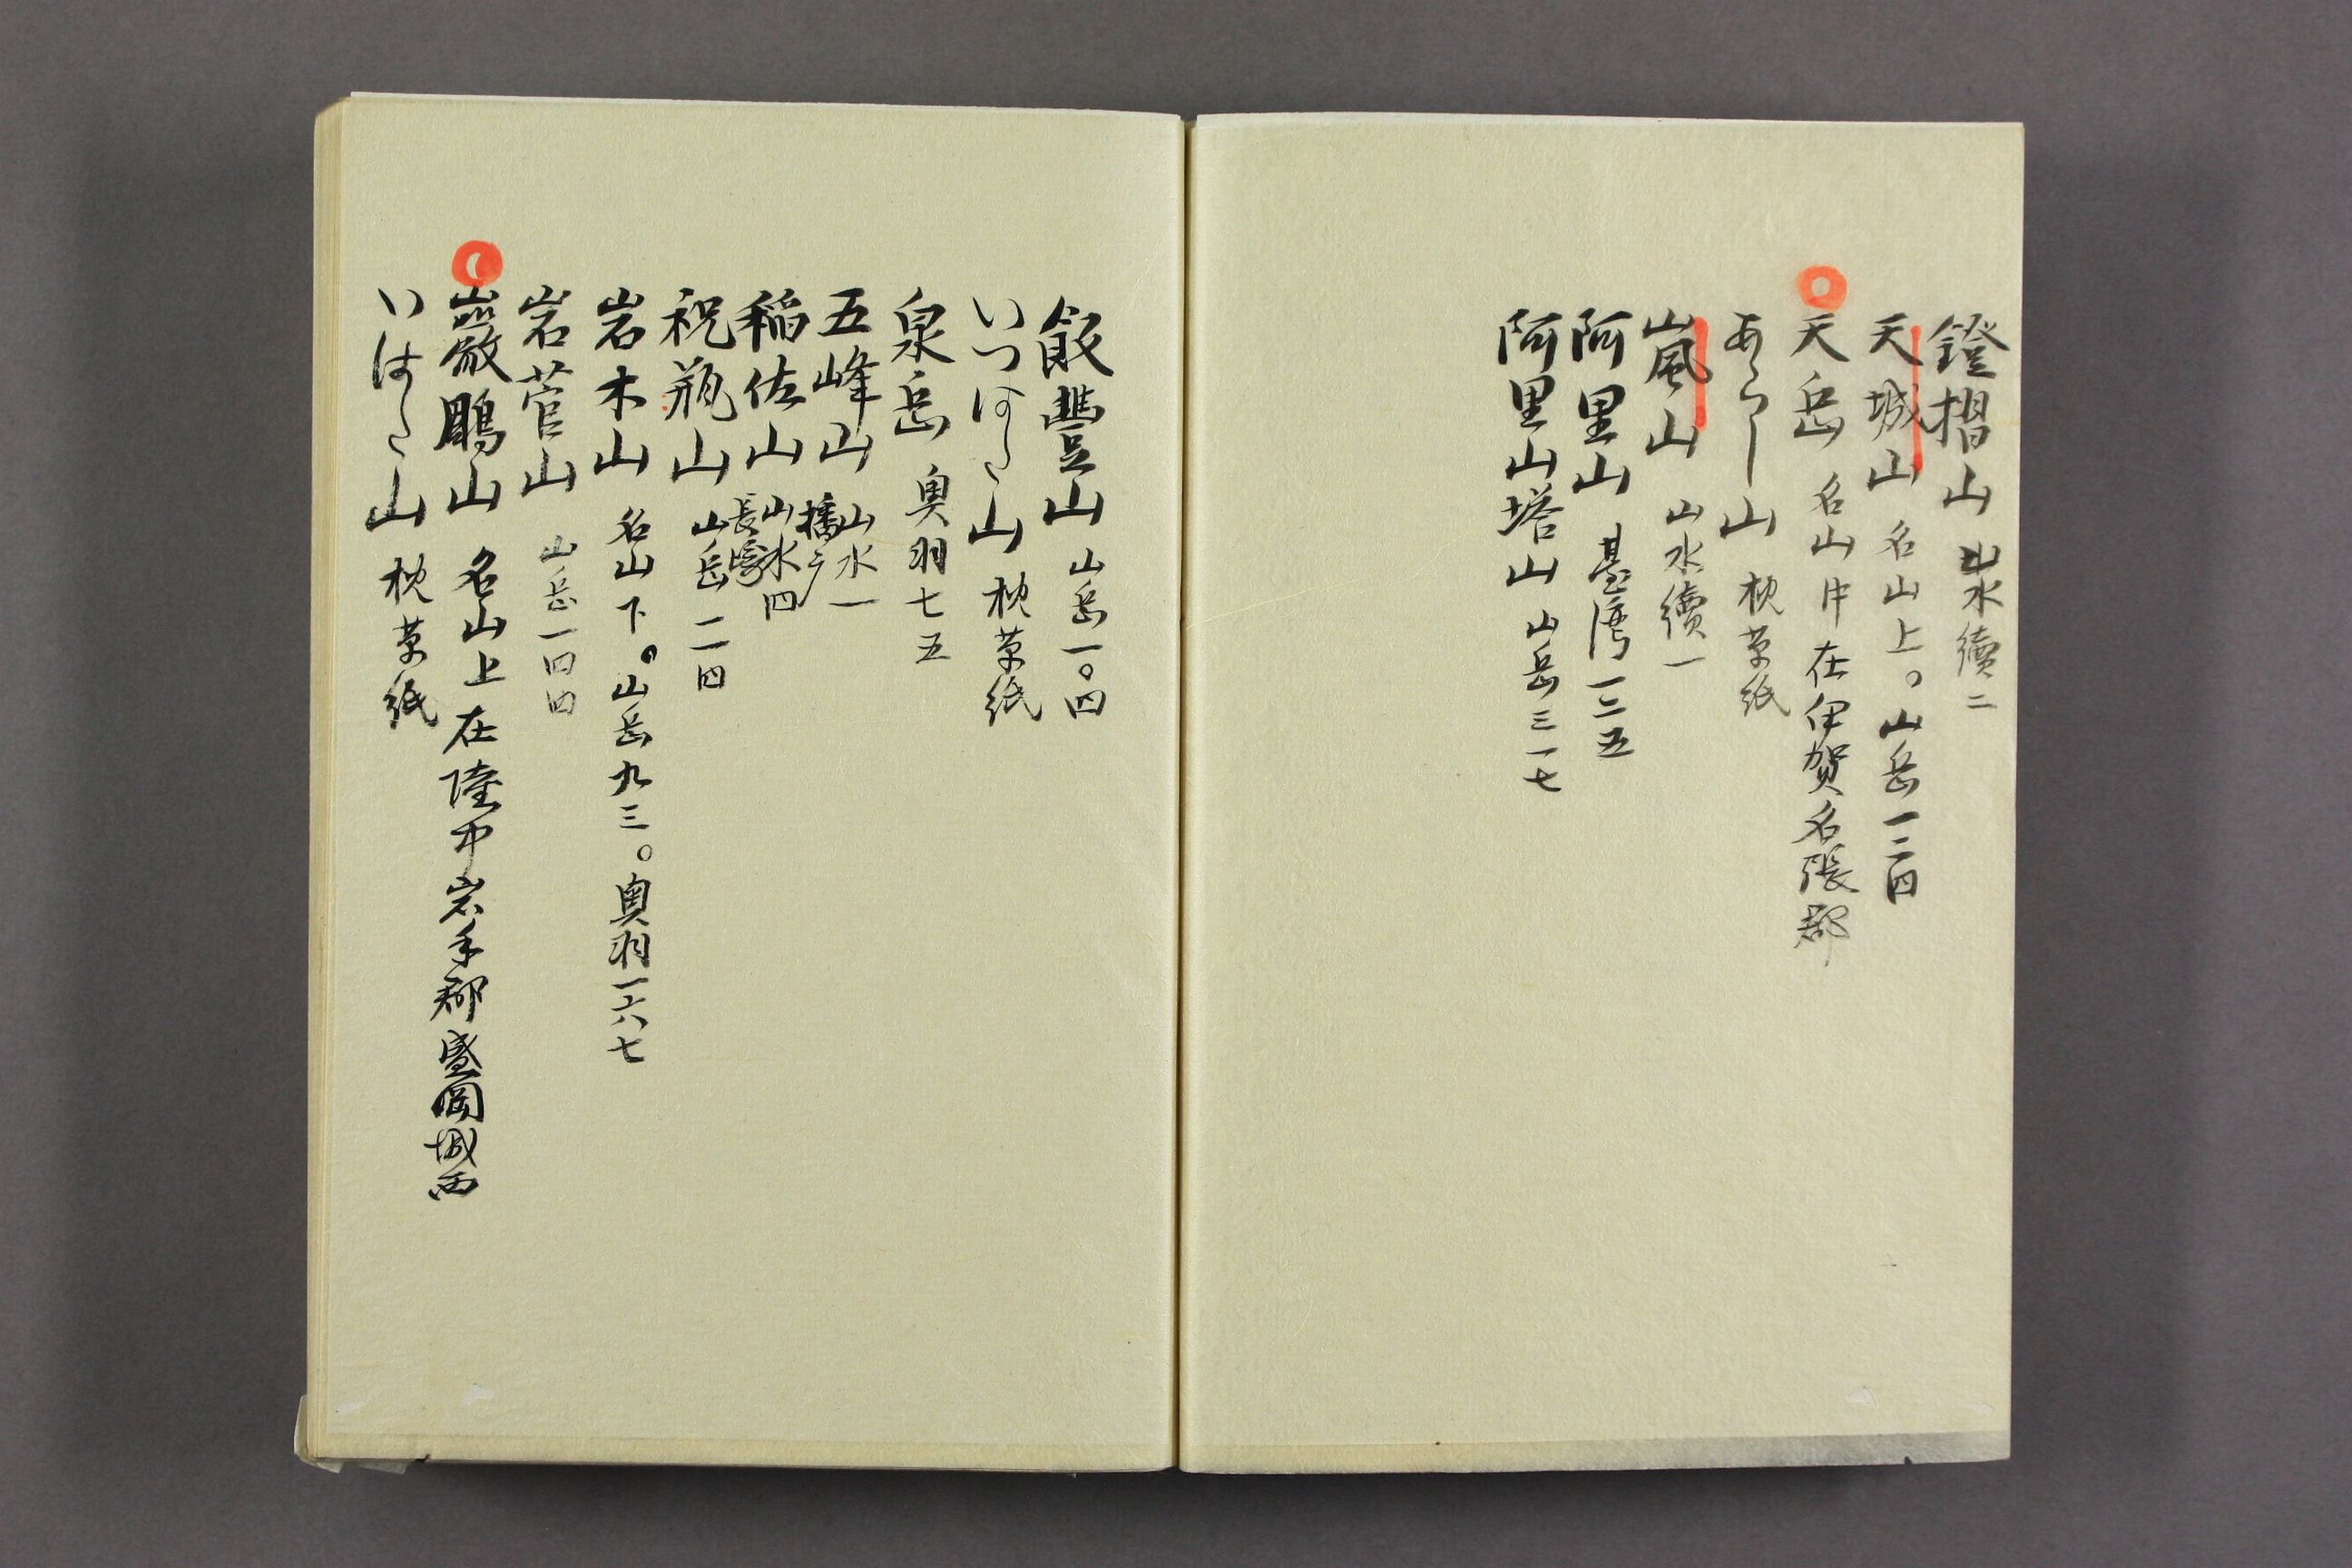 鐙摺山 山水續二
天城山 名山上。山岳一二四
天岳 名山中 在伊賀名張郡
あらし山 枕草紙
嵐山 山水續一
阿里山 臺湾一三五
阿里山塔山 山岳三一七
飯豊山 山岳一〇四
いつはた山 枕草紙
泉岳 奥羽七五
五峰山 山水一 播广
稲佐山 山水四 長崎
祝瓶山 山岳二一四
岩木山 名山下。山岳九三。奥羽一六七
岩菅山 山岳一四四
巖鷲山 名山上 在陸中岩手郡盛岡城西
いはた山 枕草紙